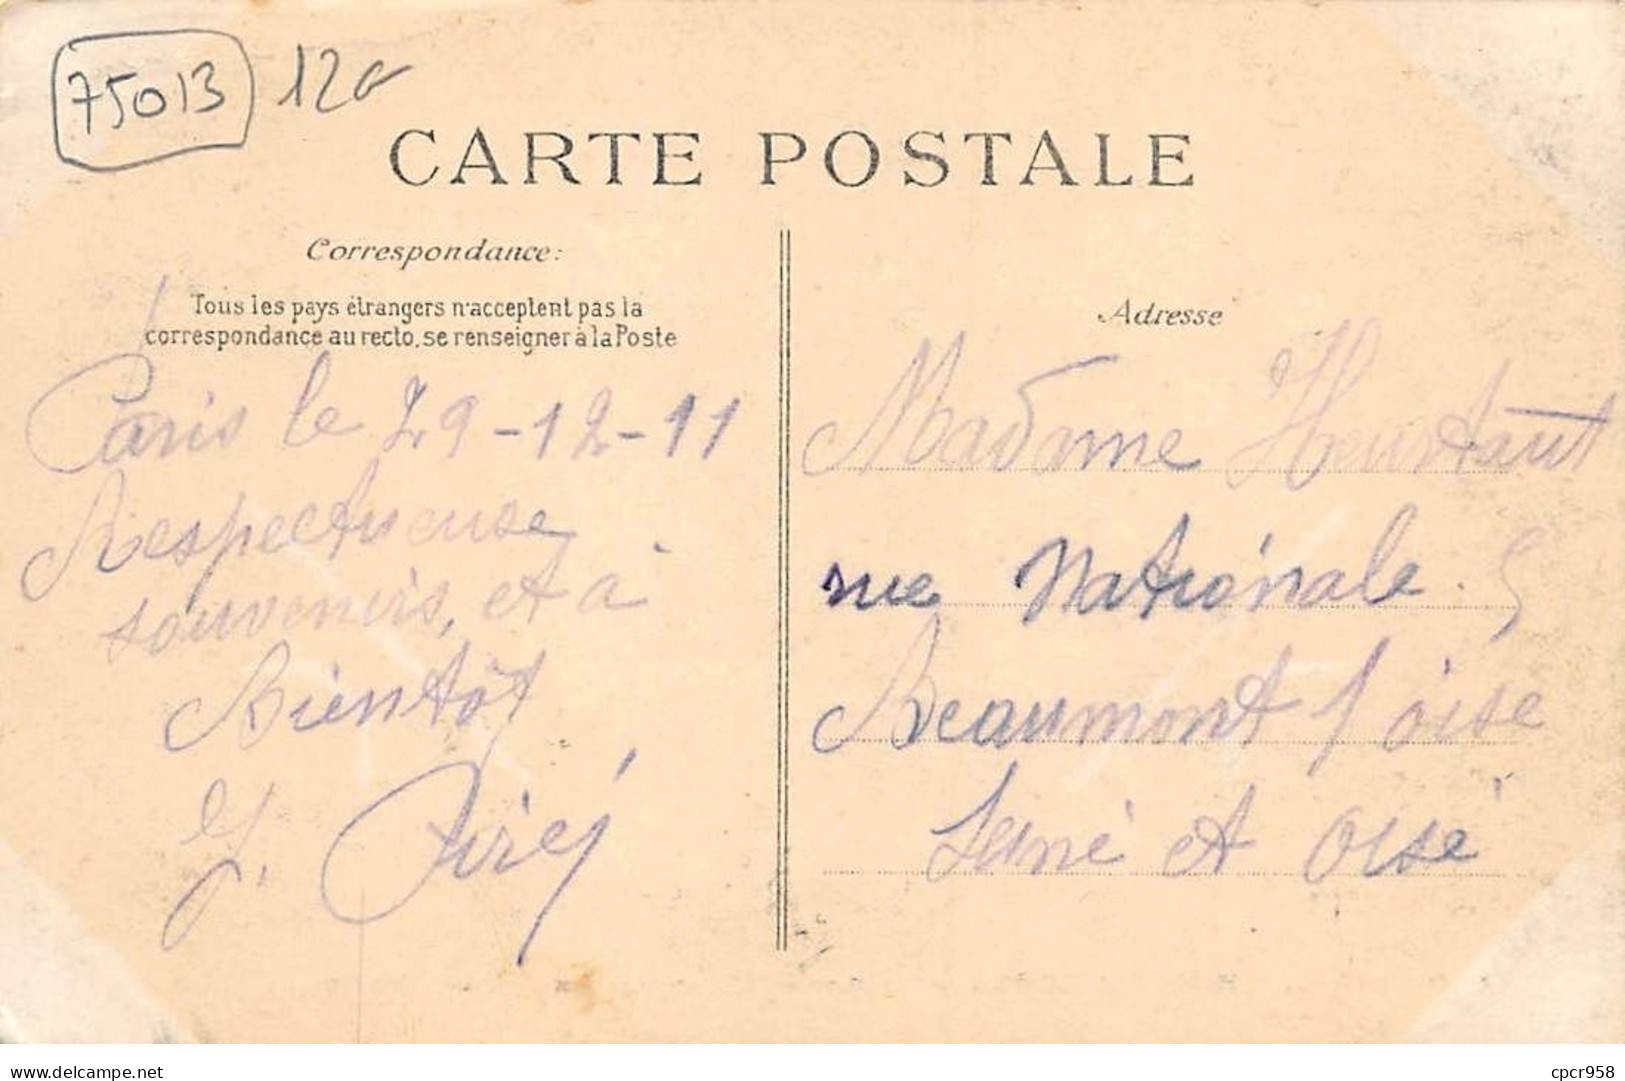 75013 12e
CARTE POSTALE
Correspondance:
Tous les pays étrangers n'acceptent pas la
correspondance au recto, se renseigner à la Poste
Paris le 29-12-11
Respectueuse
souvenirs, et à
Bientôt
Adresse
Madame Heurtaut
rue Nationale
Beaumont s/ oise
Seine et Oise
www.delcampe.net
cpcr958